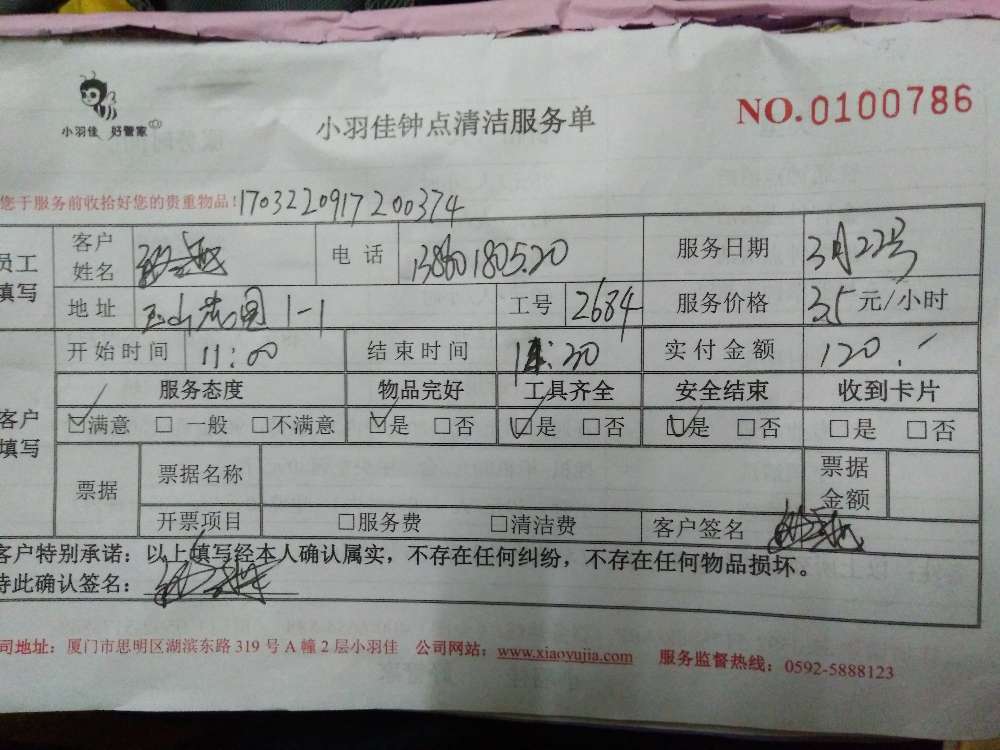 小羽佳 好管家
小羽佳钟点清洁服务单
NO.0100786
您于服务前收拾好您的贵重物品！1703220917200374
员工填写 客户姓名 电话 服务日期 3月22号
地址 1-1 工号 2684 服务价格 35元/小时
开始时间 11:00 结束时间 实付金额 120.-
服务态度 物品完好 工具齐全 安全结束 收到卡片
客户填写 ☑满意 □一般 □不满意 ☑是 □否 ☑是 □否 ☑是 □否 □是 □否
票据 票据名称 票据金额
开票项目 □服务费 □清洁费 客户签名
客户特别承诺：以上填写经本人确认属实，不存在任何纠纷，不存在任何物品损坏。
特此确认签名：
司地址：厦门市思明区湖滨东路 319 号 A 幢 2 层小羽佳 公司网站：www.xiaoyujia.com 服务监督热线：0592-5888123